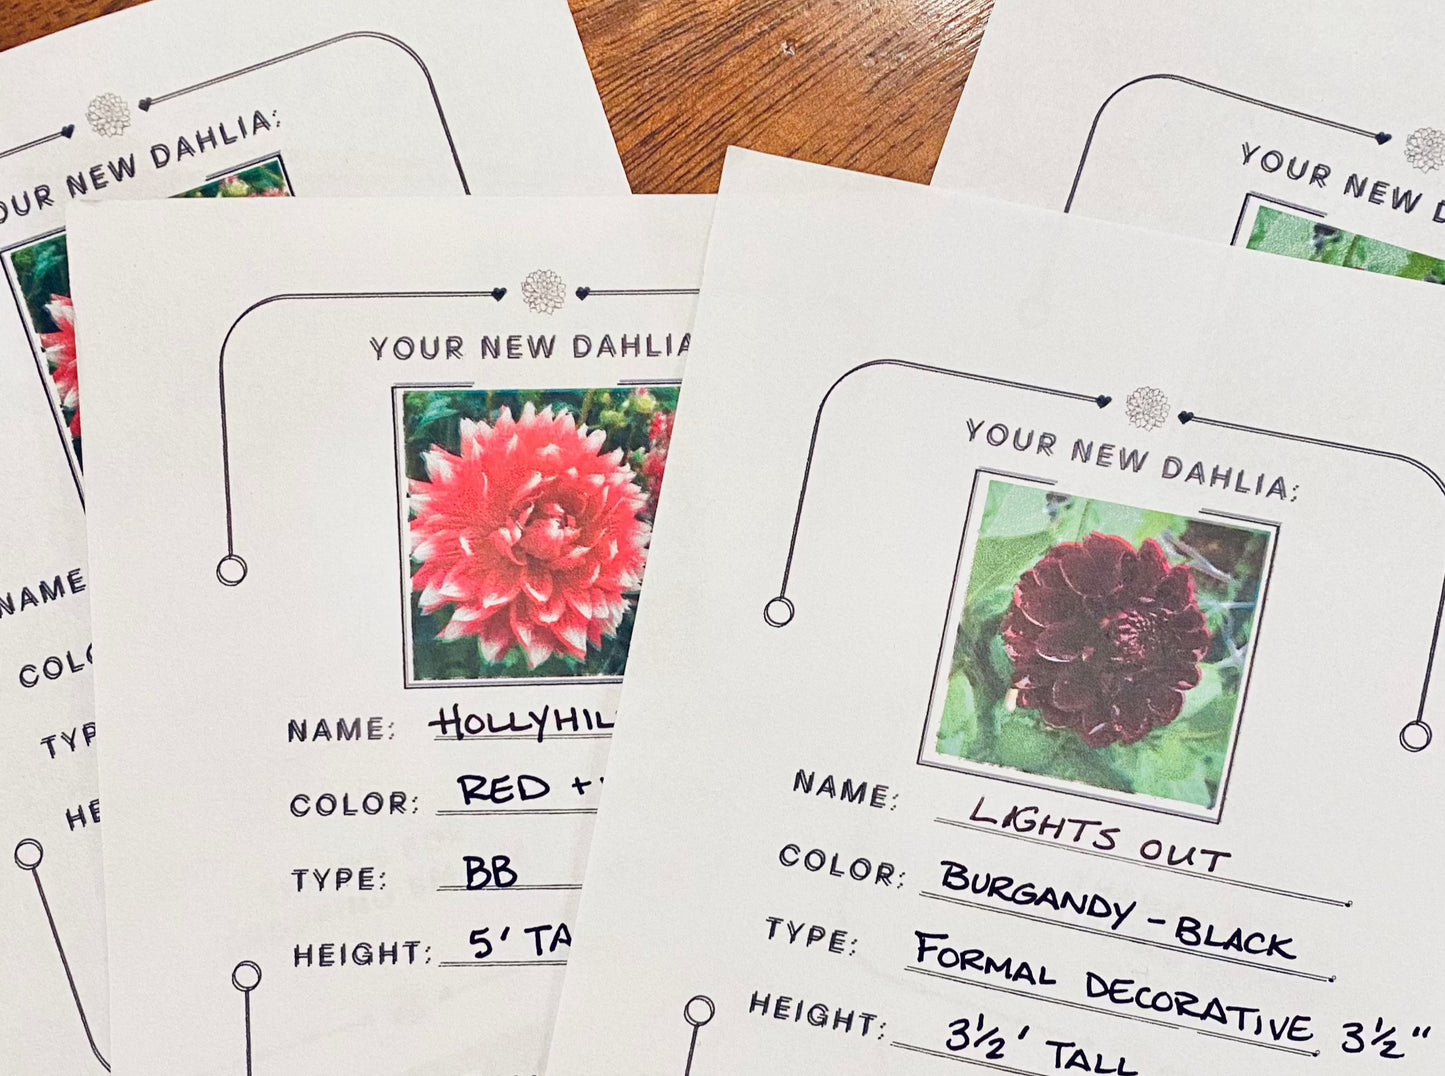 YOUR NEW DAHLIA:
NAME
COLO
TYP
HE
YOUR NEW DAHLIA
NAME: HOLLYHIL
COLOR: RED +
TYPE: BB
HEIGHT: 5' TA
YOUR NEW DAHLIA:
NAME: LIGHTS OUT
COLOR: BURGANDY - BLACK
TYPE: FORMAL DECORATIVE 3½"
HEIGHT: 3½' TALL
YOUR NEW D